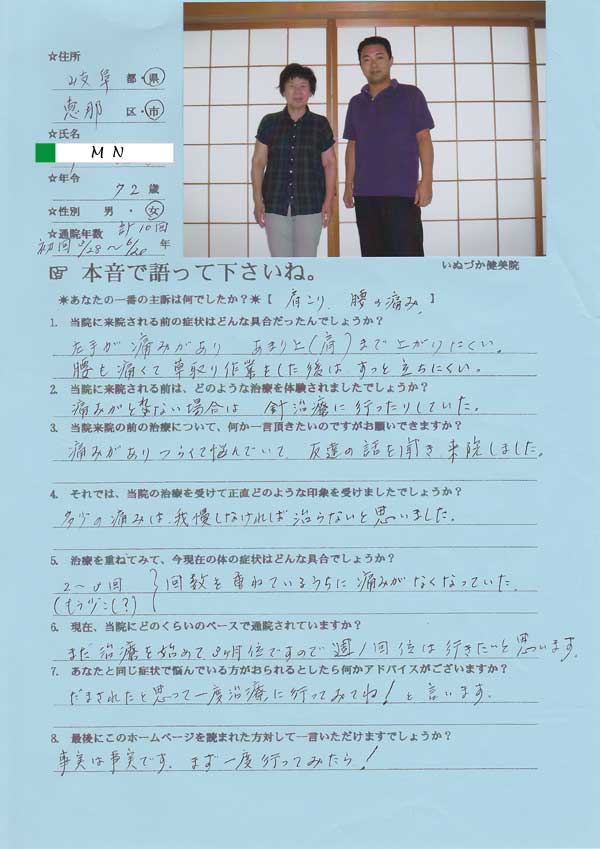 ☆住所
岐阜 都・県
恵那 区・市
☆氏名
M N
☆年令
72 歳
☆性別 男・女
☆通院年数 計10回
初回 /28～6/26 年
☞ 本音で語って下さいね。
いぬづか健美院
＊あなたの一番の主訴は何でしたか？＊【 肩こり、腰の痛み 】
1. 当院に来院される前の症状はどんな具合だったんでしょうか？
左手が痛みがあり あまり上(肩)まで上がりにくい。
腰も痛くて草取り作業をした後はすっと立ちにくい。
2. 当院に来院される前は、どのような治療を体験されましたでしょうか？
痛みがとれない場合は 針治療に行ったりしていた。
3. 当院来院の前の治療について、何か一言頂きたいのですがお願いできますか？
痛みがありつらくて悩んでいて、友達の話を聞き来院しました。
4. それでは、当院の治療を受けて正直どのような印象を受けましたでしょうか？
多少の痛みは、我慢しなければ治らないと思いました。
5. 治療を重ねてみて、今現在の体の症状はどんな具合でしょうか？
2～3回 回数を重ねているうちに痛みがなくなっていた。
(もう少し？)
6. 現在、当院にどのくらいのペースで通院されていますか？
まだ治療を始めて3ヶ月位ですので週1回位は行きたいと思います。
7. あなたと同じ症状で悩んでいる方がおられるとしたら何かアドバイスがございますか？
だまされたと思って一度治療に行ってみてね！と言います。
8. 最後にこのホームページを読まれた方対して一言いただけますでしょうか？
事実は事実です。まず一度行ってみたら！